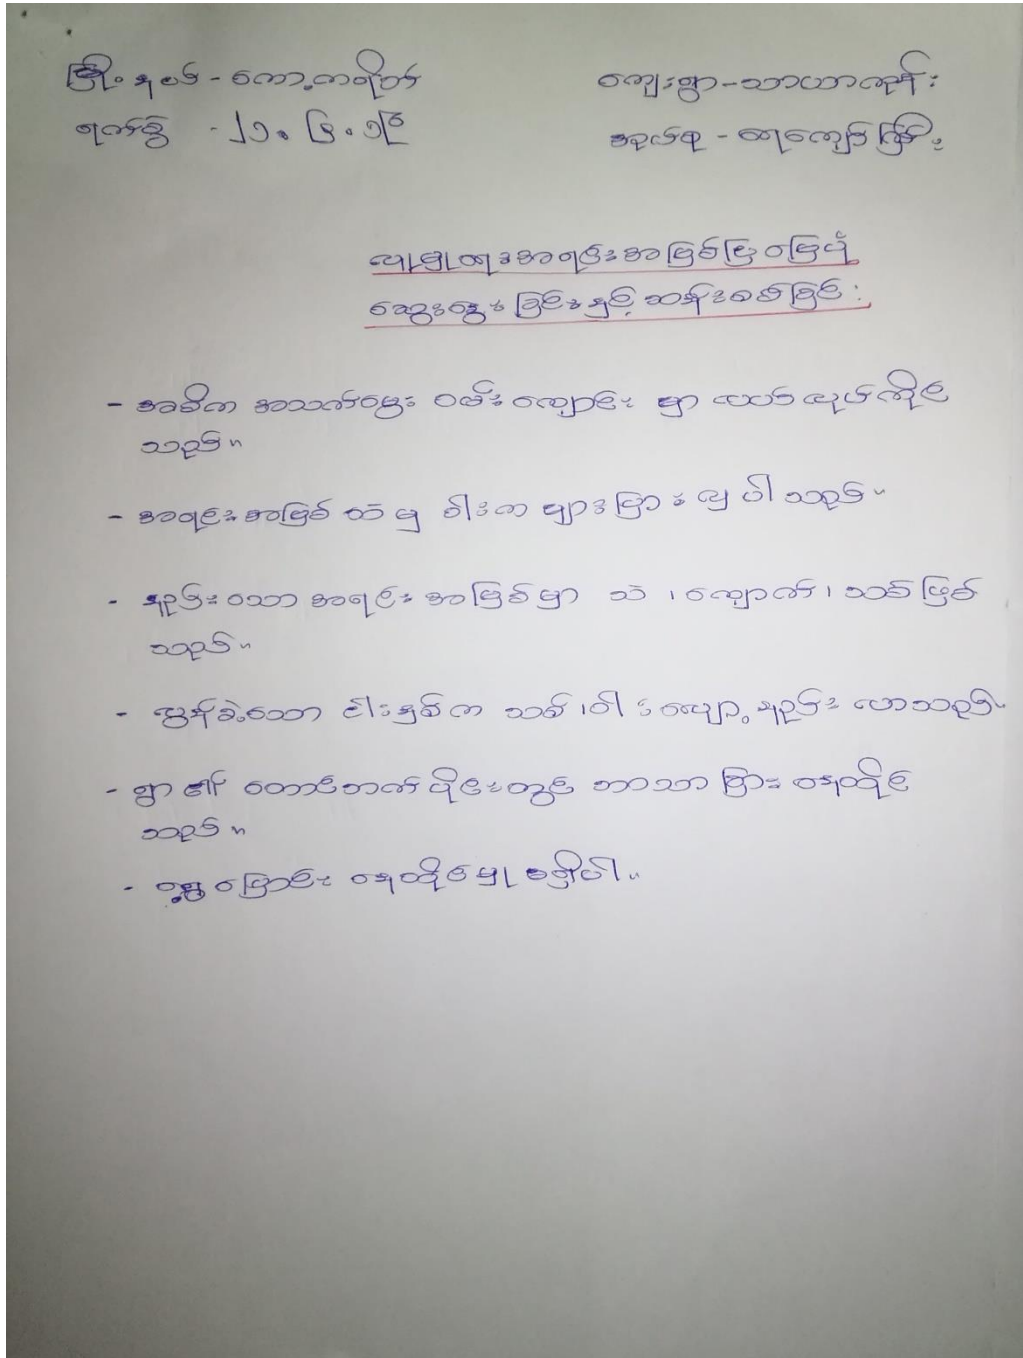 မြို့နယ် - ကော့ကရိတ် ကျေးရွာ - သာယာကုန်း
ရက်စွဲ - ၂၁. ၆. ၁၉ အုပ်စု - ဆုကျော်ကြီး
လူမှုရေးအရင်းအမြစ်ပြမြေပုံ
ဆွေးနွေးခြင်းနှင့်ဆန်းစစ်ခြင်း
- အဓိက အသက်မွေး ဝမ်းကျောင်း မှာ လယ်လုပ်ကိုင်
သည်။
- အရင်းအမြစ် ထဲမှ ဝါးက များပြားလှပါသည်။
- နည်းသော အရင်းအမြစ်မှာ သဲ၊ ကျောက်၊ သစ်ဖြစ်
သည်။
- လွန်ခဲ့သော ငါးနှစ်က သစ်၊ ဝါးလျော့နည်းလာသည်။
- ရွာ၏ တောင်ဘက်ပိုင်းတွင် ဘာသာခြားနေထိုင်
သည်။
- ရွှေ့ပြောင်း နေထိုင်မှုမရှိပါ။